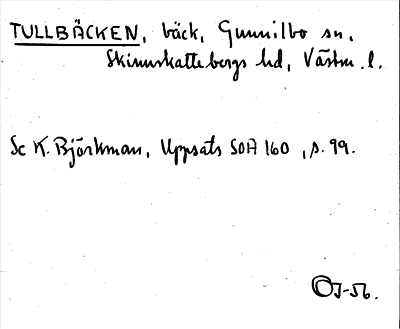 TULLBÄCKEN, bäck, Gunnilbo sn,
Skinnskattebergs hd, Västm. l.
Se K. Björkman, Uppsats SOA 160, s. 99.
OJ-56.